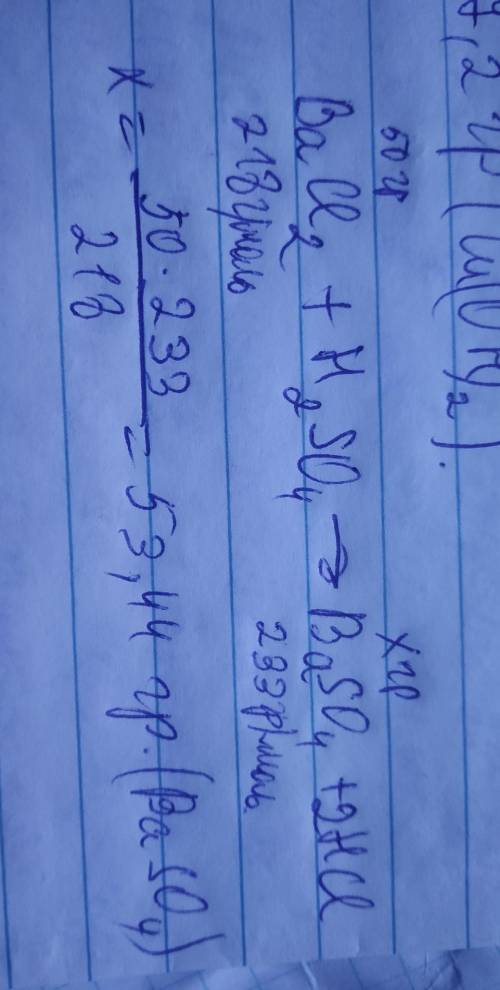 ,2 гр (Cu(OH)₂).
50 гр x гр
BaCl₂ + H₂SO₄ → BaSO₄ + 2HCl
218 гр/моль 233 гр/моль
x = 50 · 233 / 218 = 53,44 гр. (BaSO₄)